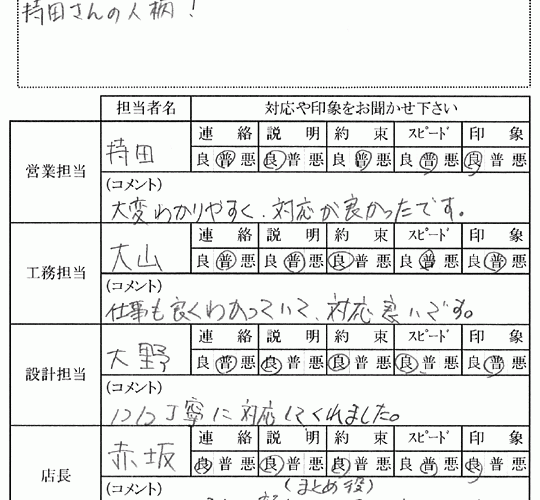 持田さんの人柄!
担当者名 対応や印象をお聞かせ下さい
営業担当 持田 連絡 説明 約束 スピード 印象
良 普 悪 良 普 悪 良 普 悪 良 普 悪 良 普 悪
(コメント)
大変わかりやすく、対応が良かったです。
工務担当 大山 連絡 説明 約束 スピード 印象
良 普 悪 良 普 悪 良 普 悪 良 普 悪 良 普 悪
(コメント)
仕事も良くわかっていて、対応良いです。
設計担当 大野 連絡 説明 約束 スピード 印象
良 普 悪 良 普 悪 良 普 悪 良 普 悪 良 普 悪
(コメント)
1つ1つ丁寧に対応してくれました。
店長 赤坂 連絡 説明 約束 スピード 印象
良 普 悪 良 普 悪 良 普 悪 良 普 悪 良 普 悪
(コメント) (まとめ役)